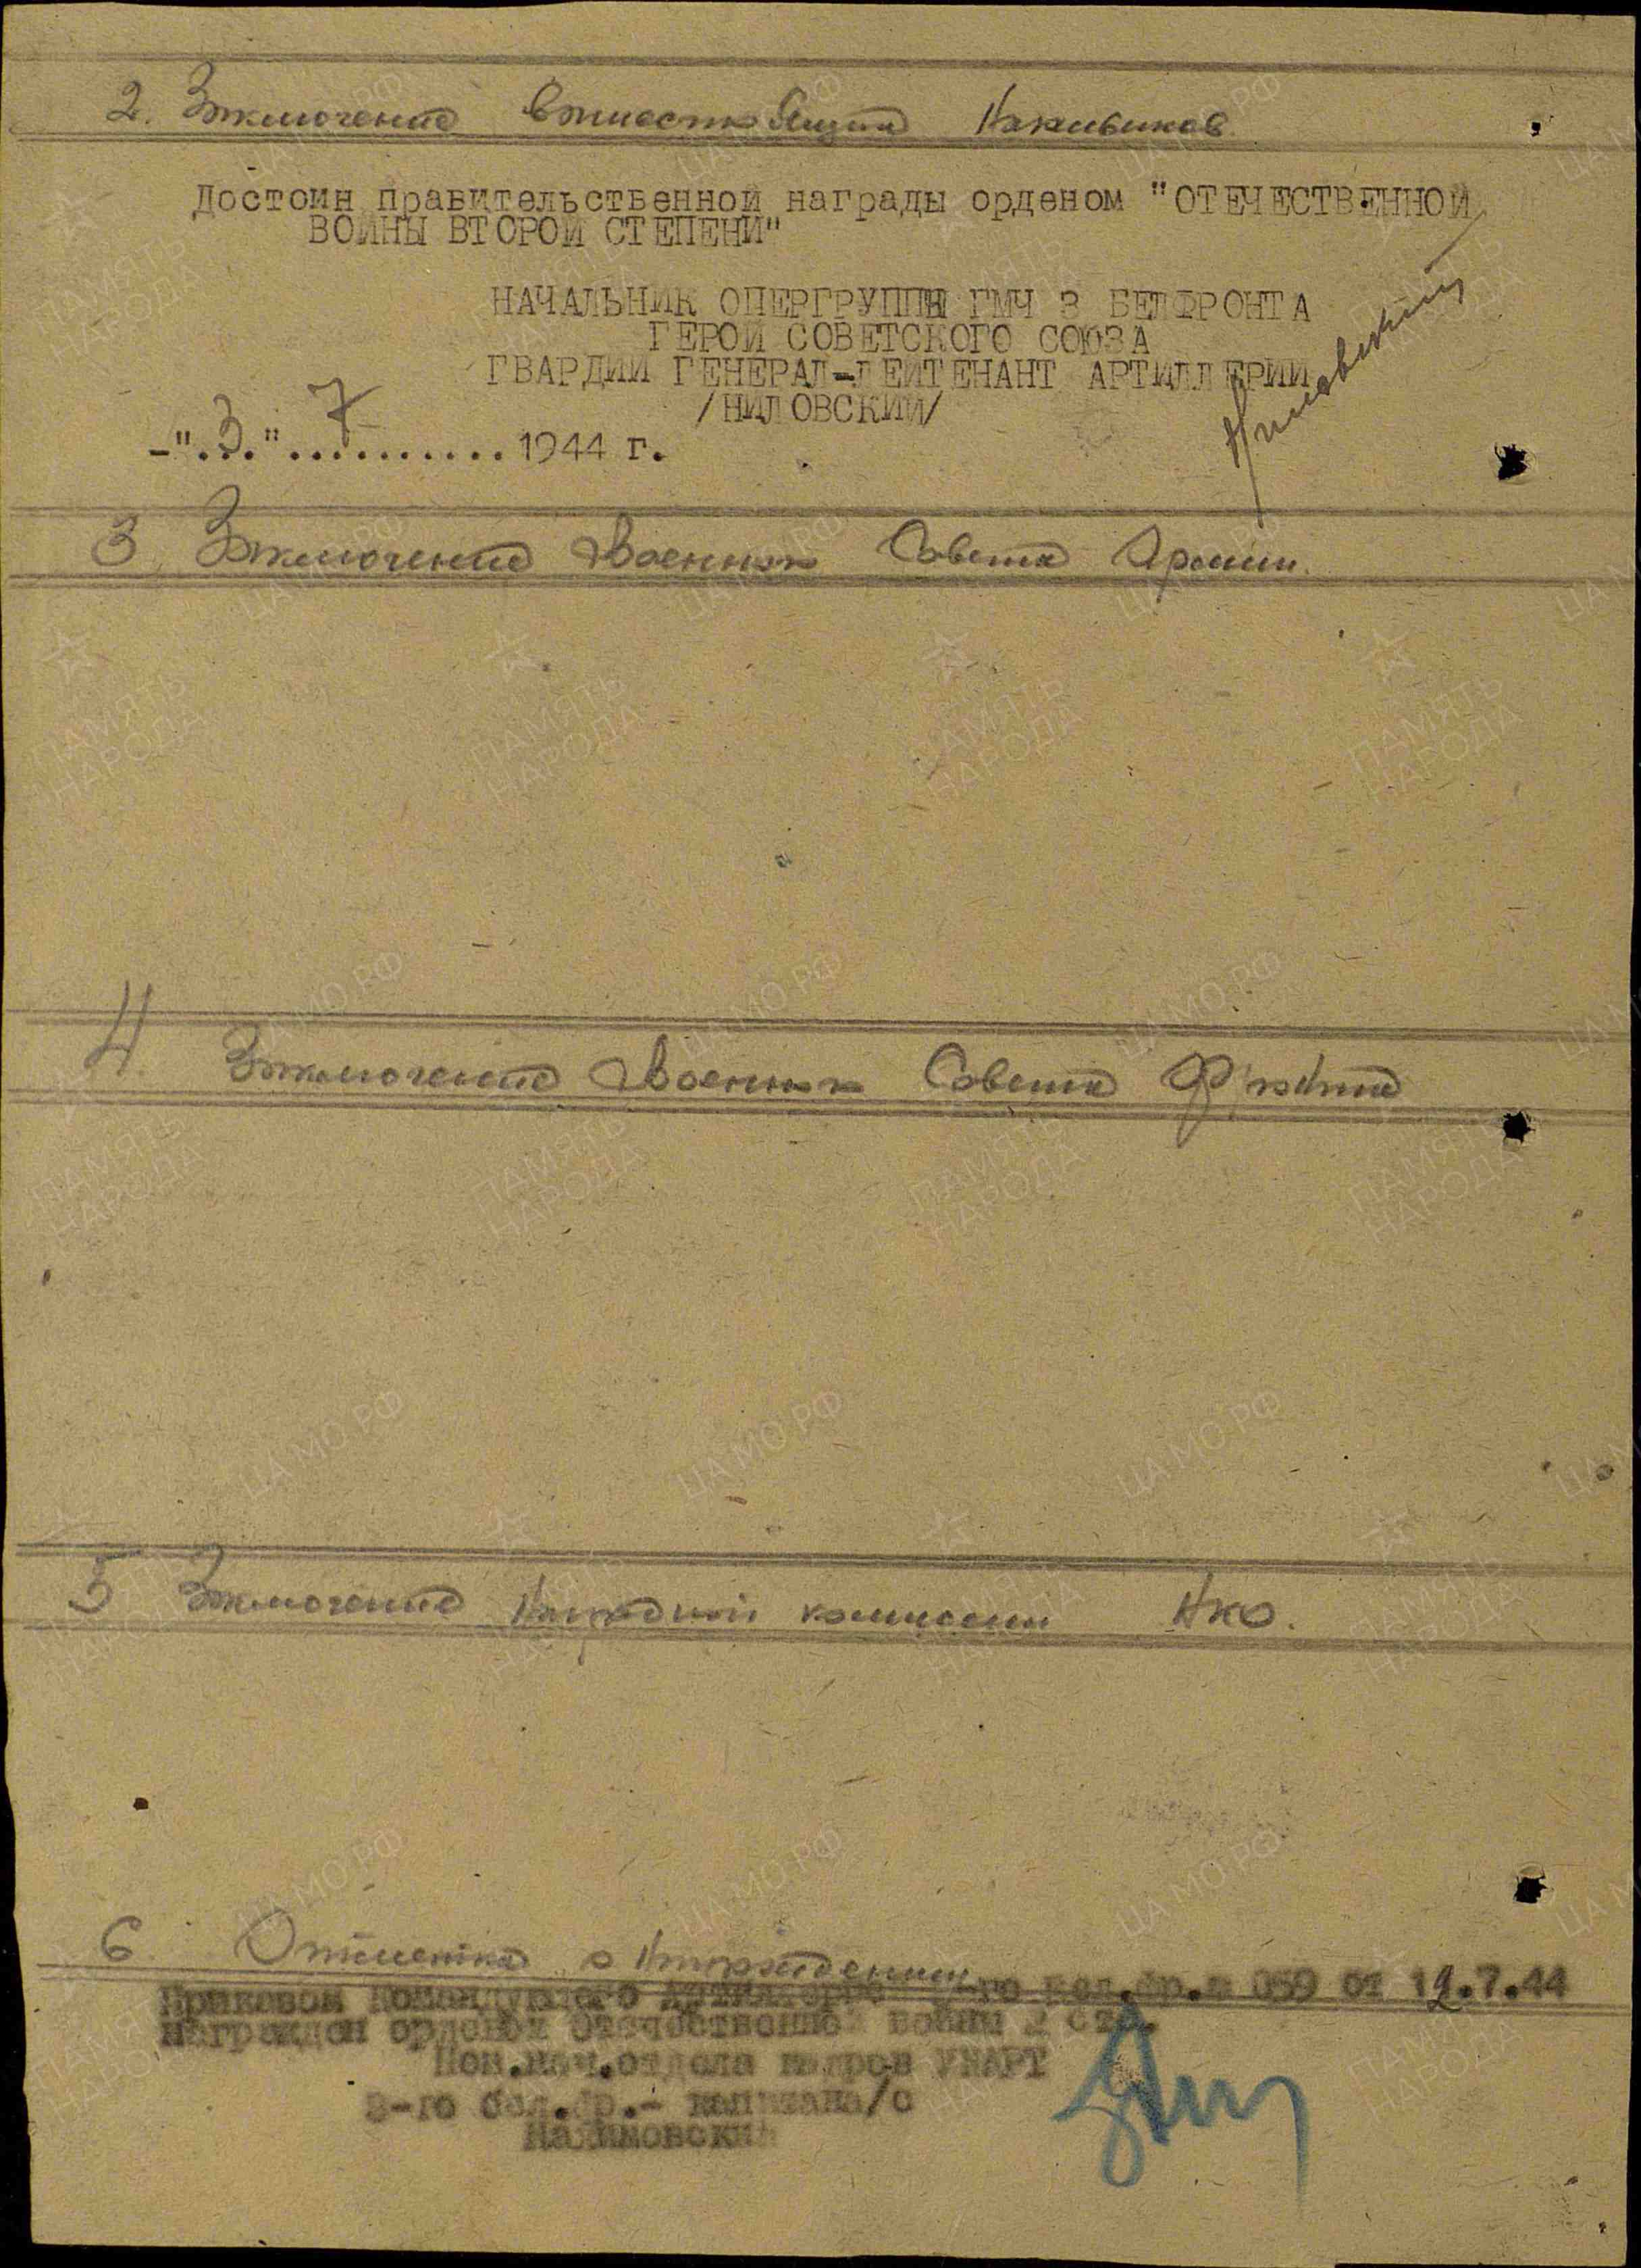 2. Заключение вышестоящих Начальников
Достоин правительственной награды орденом "ОТЕЧЕСТВЕННОЙ
ВОЙНЫ ВТОРОЙ СТЕПЕНИ"
НАЧАЛЬНИК ОПЕРГРУППЫ ГМЧ 3 БЕЛФРОНТА
ГЕРОЙ СОВЕТСКОГО СОЮЗА
ГВАРДИИ ГЕНЕРАЛ-ЛЕЙТЕНАНТ АРТИЛЛЕРИИ
/НИЛОВСКИЙ/
Ниловский
-".3."...7.......1944 г.
3 Заключение Военного Совета Армии.
4. Заключение Военного Совета Фронта
5 Заключение Наградной комиссии НКО.
6. Отметка о награждении
Приказом Командующего Артиллерией 3-го бел.фр. 059 от 12.7.44
награжден орденом Отечественной войны 2 ст.
Пом.нач.отдела кадров УКАРТ
3-го бел.фр.- капитан а/с
ПАМЯТЬ НАРОДА
ЦА МО РФ